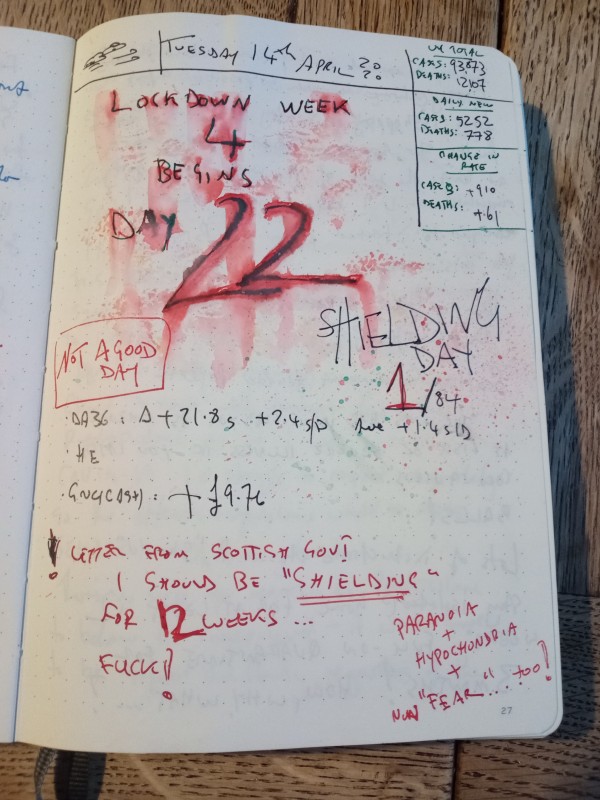 TUESDAY 14th APRIL 2020
UK TOTAL
CASES: 93,873
DEATHS: 12,107
DAILY NEW
CASES: 5252
DEATHS: 778
CHANGE IN
RATE
CASES: +910
DEATHS:
+61
LOCKDOWN WEEK
4
BEGINS
DAY 22
SHIELDING
DAY
1/84
NOT A GOOD
DAY
· DA36: Δ +21.8s +2.4s/D Ave +1.4s/D
· HE
· GNG(CASH): +£9.76
! LETTER FROM SCOTTISH GOVT
I SHOULD BE "SHIELDING"
FOR 12 WEEKS ...
FUCK!
PARANOIA
+
HYPOCHONDRIA
+
NOW "FEAR" ... TOO!
27